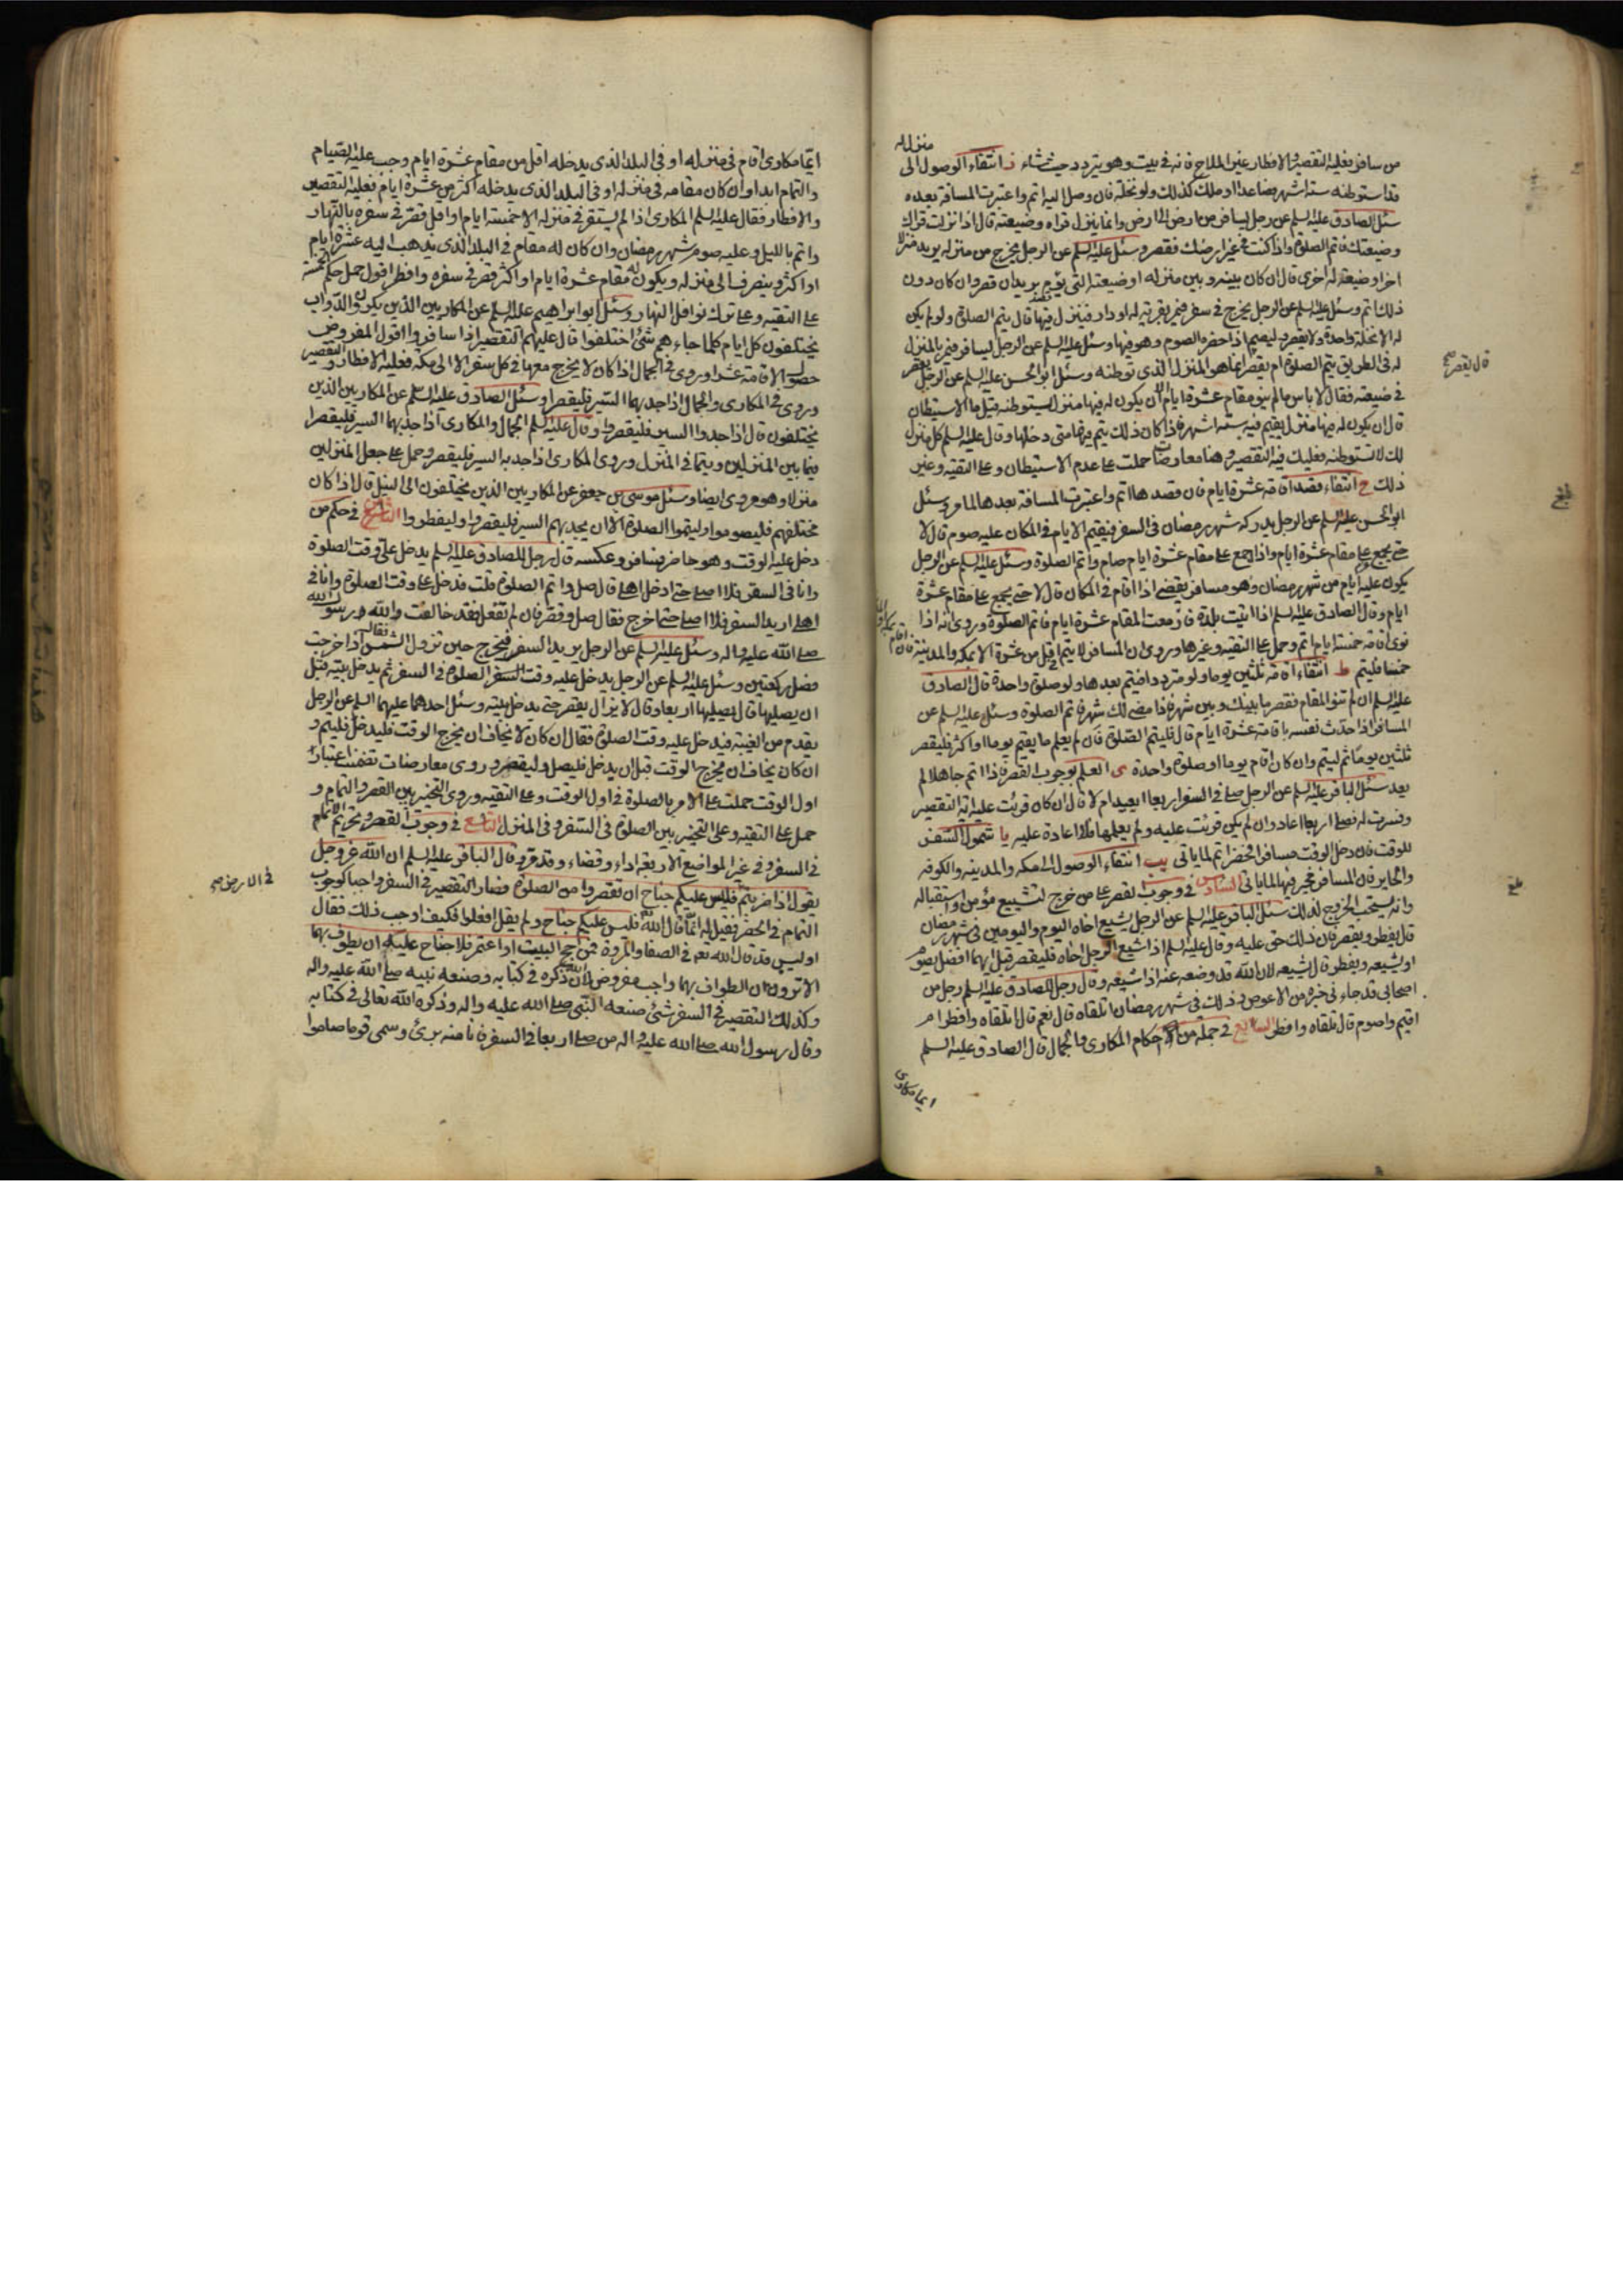 من سافر فعليه التقصير والافطار غير الملاح فانه في بيت وهو يتردد حيث شاء ز انتفاء الوصول الى منزل له
قد استوطنه ستة اشهر فصاعدا او ملك كذلك ولو نخلة فان وصل اليه اتم واعتبرت المسافة بعده
سئل الصادق عليه السلم عن رجل يسافر من ارض الى ارض وانما ينزل قراه وضيعته قال اذا نزلت قراك
وضيعتك فاتم الصلوة واذا كنت في غير ارضك فقصر وسئل عليه السلم عن الرجل يخرج من منزله يريد منزلا
اخر او ضيعة له اخرى قال ان كان بينه وبين منزله او ضيعته التي يؤم بريدان قصر وان كان دون
ذلك اتم وسئل عليه السلم عن الرجل يخرج في سفر فيمر بقرية له او دار فينزل فيها قال يتم الصلوة ولو لم يكن
له الا نخلة واحدة ولا يقصر وليصم اذا حضره الصوم وهو فيها وسئل عليه السلم عن الرجل يسافر فيمر بالمنزل
له في الطريق يتم الصلوة ام يقصر انما هو المنزل الذي توطنه وسئل ابو الحسن عليه السلم عن الرجل يقصر
قال يقصر صح
في ضيعته فقال لا باس ما لم ينو مقام عشرة ايام الا ان يكون له فيها منزل يستوطنه قيل ما الاستيطان
قال ان يكون له فيها منزل يقيم فيه ستة اشهر فاذا كان ذلك يتم فيها متى دخلها وقال عليه السلم كل منزل
لك لا تستوطنه فعليك فيه التقصير وهنا معارضات حملت على عدم الاستيطان وعلى التقية وغير
ذلك ح انتفاء قصد اقامة عشرة ايام فان قصدها اتم واعتبرت المسافة بعدها لما مر وسئل
ابو الحسن عليه السلم عن الرجل يدركه شهر رمضان في السفر فيقيم الايام في المكان عليه صوم قال لا
حتى يجمع على مقام عشرة ايام واذا اجمع على مقام عشرة ايام صام واتم الصلوة وسئل عليه السلم عن الرجل
يكون عليه ايام من شهر رمضان وهو مسافر يقضي اذا اقام في المكان قال لا حتى يجمع على مقام عشرة
ايام وقال الصادق عليه السلم اذا اتيت بلدة فازمعت المقام عشرة ايام فاتم الصلوة وروي انه اذا
نوى اقامة خمسة ايام اتم وحمل على التقية وغيرها وروي ان المسافر لا يتم في اقل من عشرة الا بمكة والمدينة فان اقام
خمسا فليتم ط انتفاء اقامة ثلثين يوما ولو مترددا فيتم بعدها ولو صلوة واحدة قال الصادق
عليه السلم ان لم تنو المقام فقصر ما بينك وبين شهر فاذا مضى لك شهر فاتم الصلوة وسئل عليه السلم عن
المسافر اذا حدث نفسه باقامة عشرة ايام قال فليتم الصلوة فان لم يعلم ما يقيم يوما او اكثر فليقصر
ثلثين يوما ثم ليتم وان كان اقام يوما او صلوة واحدة ى العلم بوجوب القصر فاذا اتم جاهلا لم
يعد سئل الباقر عليه السلم عن الرجل صلى في السفر اربعا ايعيد ام لا قال ان كان قرئت عليه اية التقصير
وفسرت له فصلى اربعا اعاد وان لم يكن قرئت عليه ولم يعلمها فلا اعادة عليه يا شمول السفر
للوقت فان دخل الوقت مسافر الحضر اتم لما ياتي يب انتفاء الوصول الى مكه والمدينه والكوفه
والحاير فان المسافر يخير فيها لما ياتي السادس في وجوب القصر على من خرج لتشييع مؤمن او استقباله
وانه يستحب الخروج لذلك سئل الباقر عليه السلم عن الرجل يشيع اخاه اليوم واليومين في شهر رمضان
قال يفطر ويقصر فان ذلك حق عليه وقال عليه السلم اذا شيع الرجل اخاه فليقصر قيل ايهما افضل يصوم
او يشيعه ويفطر قال يشيعه لان الله قد وضعه عنه اذا شيعه وقال رجل للصادق عليه السلم رجل من
اصحابي قد جاءني خبره من الاعوص وذلك في شهر رمضان اتلقاه قال نعم قال اتلقاه وافطر ام
اقيم واصوم قال تلقاه وافطر السابع في جملة من احكام المكاري والجمال قال الصادق عليه السلم
ايما مكاري
بلغ
ايما مكاري اقام في منزله او في البلد الذي يدخله اقل من مقام عشرة ايام وجب عليه الصيام
والتمام ابدا وان كان مقامه في منزله او في البلد الذي يدخله اكثر من عشرة ايام فعليه التقصير
والافطار فقال عليه السلم المكاري اذا لم يستقر في منزله الا خمسة ايام او اقل قصر في سفره بالنهار
واتم بالليل وعليه صوم شهر رمضان وان كان له مقام في البلد الذي يذهب اليه عشرة ايام
او اكثر وينصرف الى منزله ويكون له مقام عشرة ايام او اكثر قصر في سفره وافطر اقول حمل حكم الخمسة
على التقية وعلى ترك نوافل النهار وسئل ابو ابراهيم عليه السلم عن المكاريين الذين يكرون الدواب
يختلفون كل ايام كلما جاءهم شئ اختلفوا قال عليهم التقصير اذا سافروا اقول المفروض
حصول الاقامة عشرا وروي في الجمال اذا كان لا يخرج معها في كل سفر الا الى مكه فعليه الافطار والتقصير
وروي في المكاري والجمال اذا جد بهما السير فليقصرا وسئل الصادق عليه السلم عن المكاريين الذين
يختلفون قال اذا جدوا السير فليقصروا وقال عليه السلم الجمال والمكاري اذا جد بهما السير فليقصرا
فيما بين المنزلين ويتما في المنزل وروي المكاري اذا جد به السير فليقصر وحمل على جعل المنزلين
منزلا وهو مروي ايضا وسئل موسى بن جعفر عن المكاريين الذين يختلفون الى النيل قال اذا كان
مختلفهم فليصوموا وليتموا الصلوة الا ان يجد بهم السير فليقصروا وليفطروا الثامن في حكم من
دخل عليه الوقت وهو حاضر فسافر وعكسه قال رجل للصادق عليه السلم يدخل علي وقت الصلوة
وانا في السفر فلا اصلي حتى ادخل اهلي قال صل واتم الصلوة قلت فدخل علي وقت الصلوة وانا في
اهلي اريد السفر فلا اصلي حتى اخرج فقال صل وقصر فان لم تفعل فقد خالفت والله رسول الله
صلى الله عليه واله وسئل عليه السلم عن الرجل يريد السفر فيخرج حين تزول الشمس فقال اذا خرجت
فصل ركعتين وسئل عليه السلم عن الرجل يدخل عليه وقت الصلوة في السفر ثم يدخل بيته قبل
ان يصليها قال يصليها اربعا وقال لا يزال يقصر حتى يدخل بيته وسئل احدهما عليهما السلم عن الرجل
يقدم من الغيبة فيدخل عليه وقت الصلوة فقال ان كان لا يخاف ان يخرج الوقت فليدخل فليتم و
ان كان يخاف ان يخرج الوقت قبل ان يدخل فليصل وليقصر وروي معارضات تضمنت اعتبار
اول الوقت حملت على الامر بالصلوة في اول الوقت وعلى التقية وروي التخيير بين القصر والتمام و
حمل على التقية وعلى التخيير بين الصلوة في السفر وفي المنزل التاسع في وجوب القصر وتحريم التمام
في السفر وفي غير المواضع الاربعة اداء وقضاء وقد مر وقال الباقر عليه السلم ان الله عز وجل
يقول اذا ضربتم فليس عليكم جناح ان تقصروا من الصلوة فصار التقصير في السفر واجبا كوجوب
في الارض صح
التمام في الحضر فقيل له انما قال الله فليس عليكم جناح ولم يقل افعلوا فكيف اوجب ذلك فقال
اوليس قد قال الله تعه في الصفا والمروة فمن حج البيت او اعتمر فلا جناح عليه ان يطوف بهما
الا ترون ان الطواف بهما واجب مفروض لان الله ذكره في كتابه وصنعه نبيه صلى الله عليه واله
وكذلك التقصير في السفر شئ صنعه النبي صلى الله عليه واله وذكره الله تعالى في كتابه
وقال رسول الله صلى الله عليه واله من صلى اربعا في السفر فانا منه برئ وسمى قوما صاموا